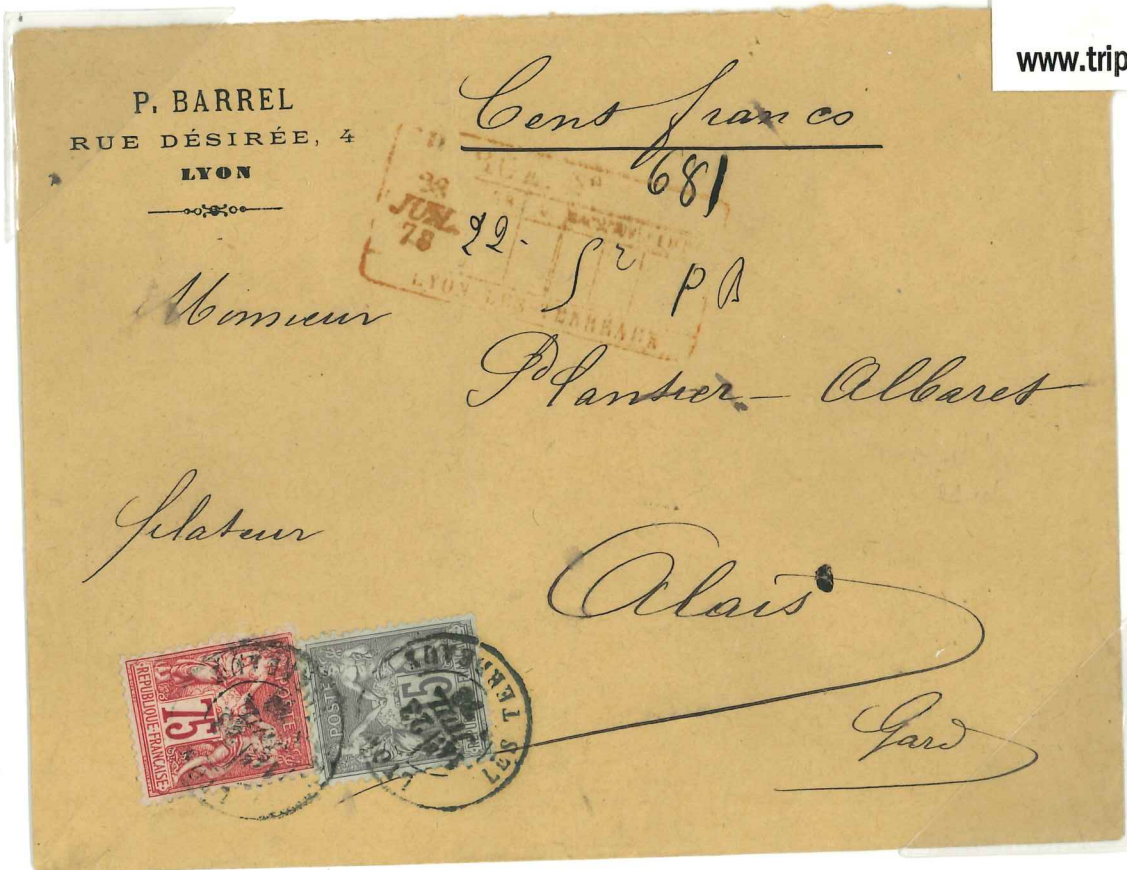 www.trip
P. BARREL
RUE DÉSIRÉE, 4
LYON
Cent francs
681
28
JUIL.
78
22.
LYON LES TERREAUX
Monsieur
Plantier - Albaret
filateur
Alais
Gard
75
POSTES
REPUBLIQUE FRANÇAISE
25
LES TERREAUX